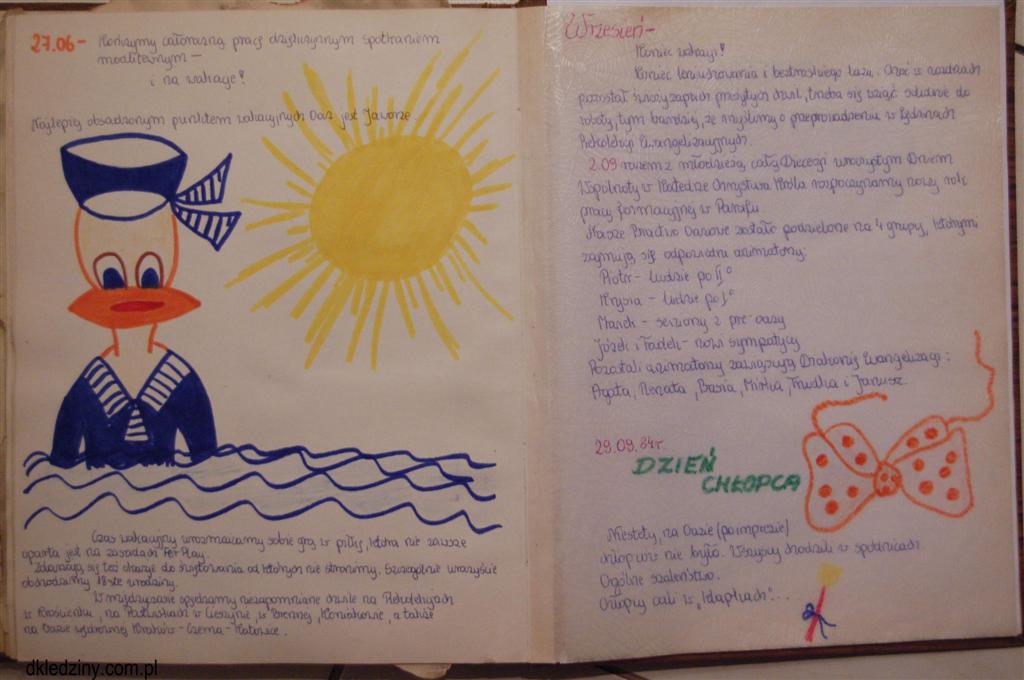 27.06 - Kończymy całoroczną pracę dziękczynnym spotkaniem
modlitewnym -
i na wakacje!
Najlepiej obsadzonym punktem wakacyjnych Oaz jest Jaworze.
Czas wakacyjny urozmaicamy sobie grą w piłkę, która nie zawsze
oparta jest na zasadach Fer Play.
Zdarzają się też okazje do świętowania od których nie stronimy. Szczególnie uroczyście
obchodzimy 18-ste urodziny.
W międzyczasie spędzamy niezapomniane chwile na Rekolekcjach
w Krościenku, na Pastwiskach w Cieszynie, w Brennej, Koniakowie, a także
na Oazie wędrownej Kraków - Czerna - Katowice.
Wrzesień -
Koniec wakacji!
Koniec leniuchowania i beztroskiego luzu. Choć w nozdrzach
pozostał świeży zapach przeżytych chwil, trzeba się wziąć solidnie do
roboty, tym bardziej, że myślimy o przeprowadzeniu w Lędzinach
Rekolekcji Ewangelizacyjnych.
2.09 razem z młodzieżą całej Diecezji uroczystym Dniem
Wspólnoty w Katedrze Chrystusa Króla rozpoczynamy nowy rok
pracy formacyjnej w Parafii.
Nasze Bractwo Oazowe zostało podzielone na 4 grupy, którymi
zajmują się odpowiedni animatorzy:
Piotr - ludzie po II°
Krysia - ludzie po I°
Marek - seziony z pre-oazy
Józek i Tadek - nowi sympatycy
Pozostali animatorzy zawiązują Diakonię Ewangelizacji:
Agata, Renata, Basia, Mirka, Trudka i Janusz.
29.09.84r.
DZIEŃ
CHŁOPCA
Niestety, na Oazie (po imprezie)
chłopców nie było. Wszyscy chodzili w spódnicach.
Ogólne szaleństwo.
Chłopcy cali w "kłapkach"...
dkledziny.com.pl